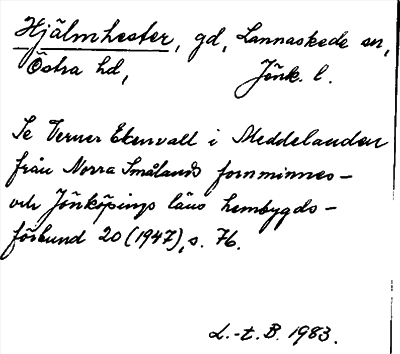 Hjälmhester, gd, Lannaskede sn,
Östra hd, Jönk. l.
Se Verner Ekenvall i Meddelanden
från Norra Smålands fornminnes-
och Jönköpings läns hembygds-
förbund 20 (1947), s. 76.
L.-t. B. 1983.